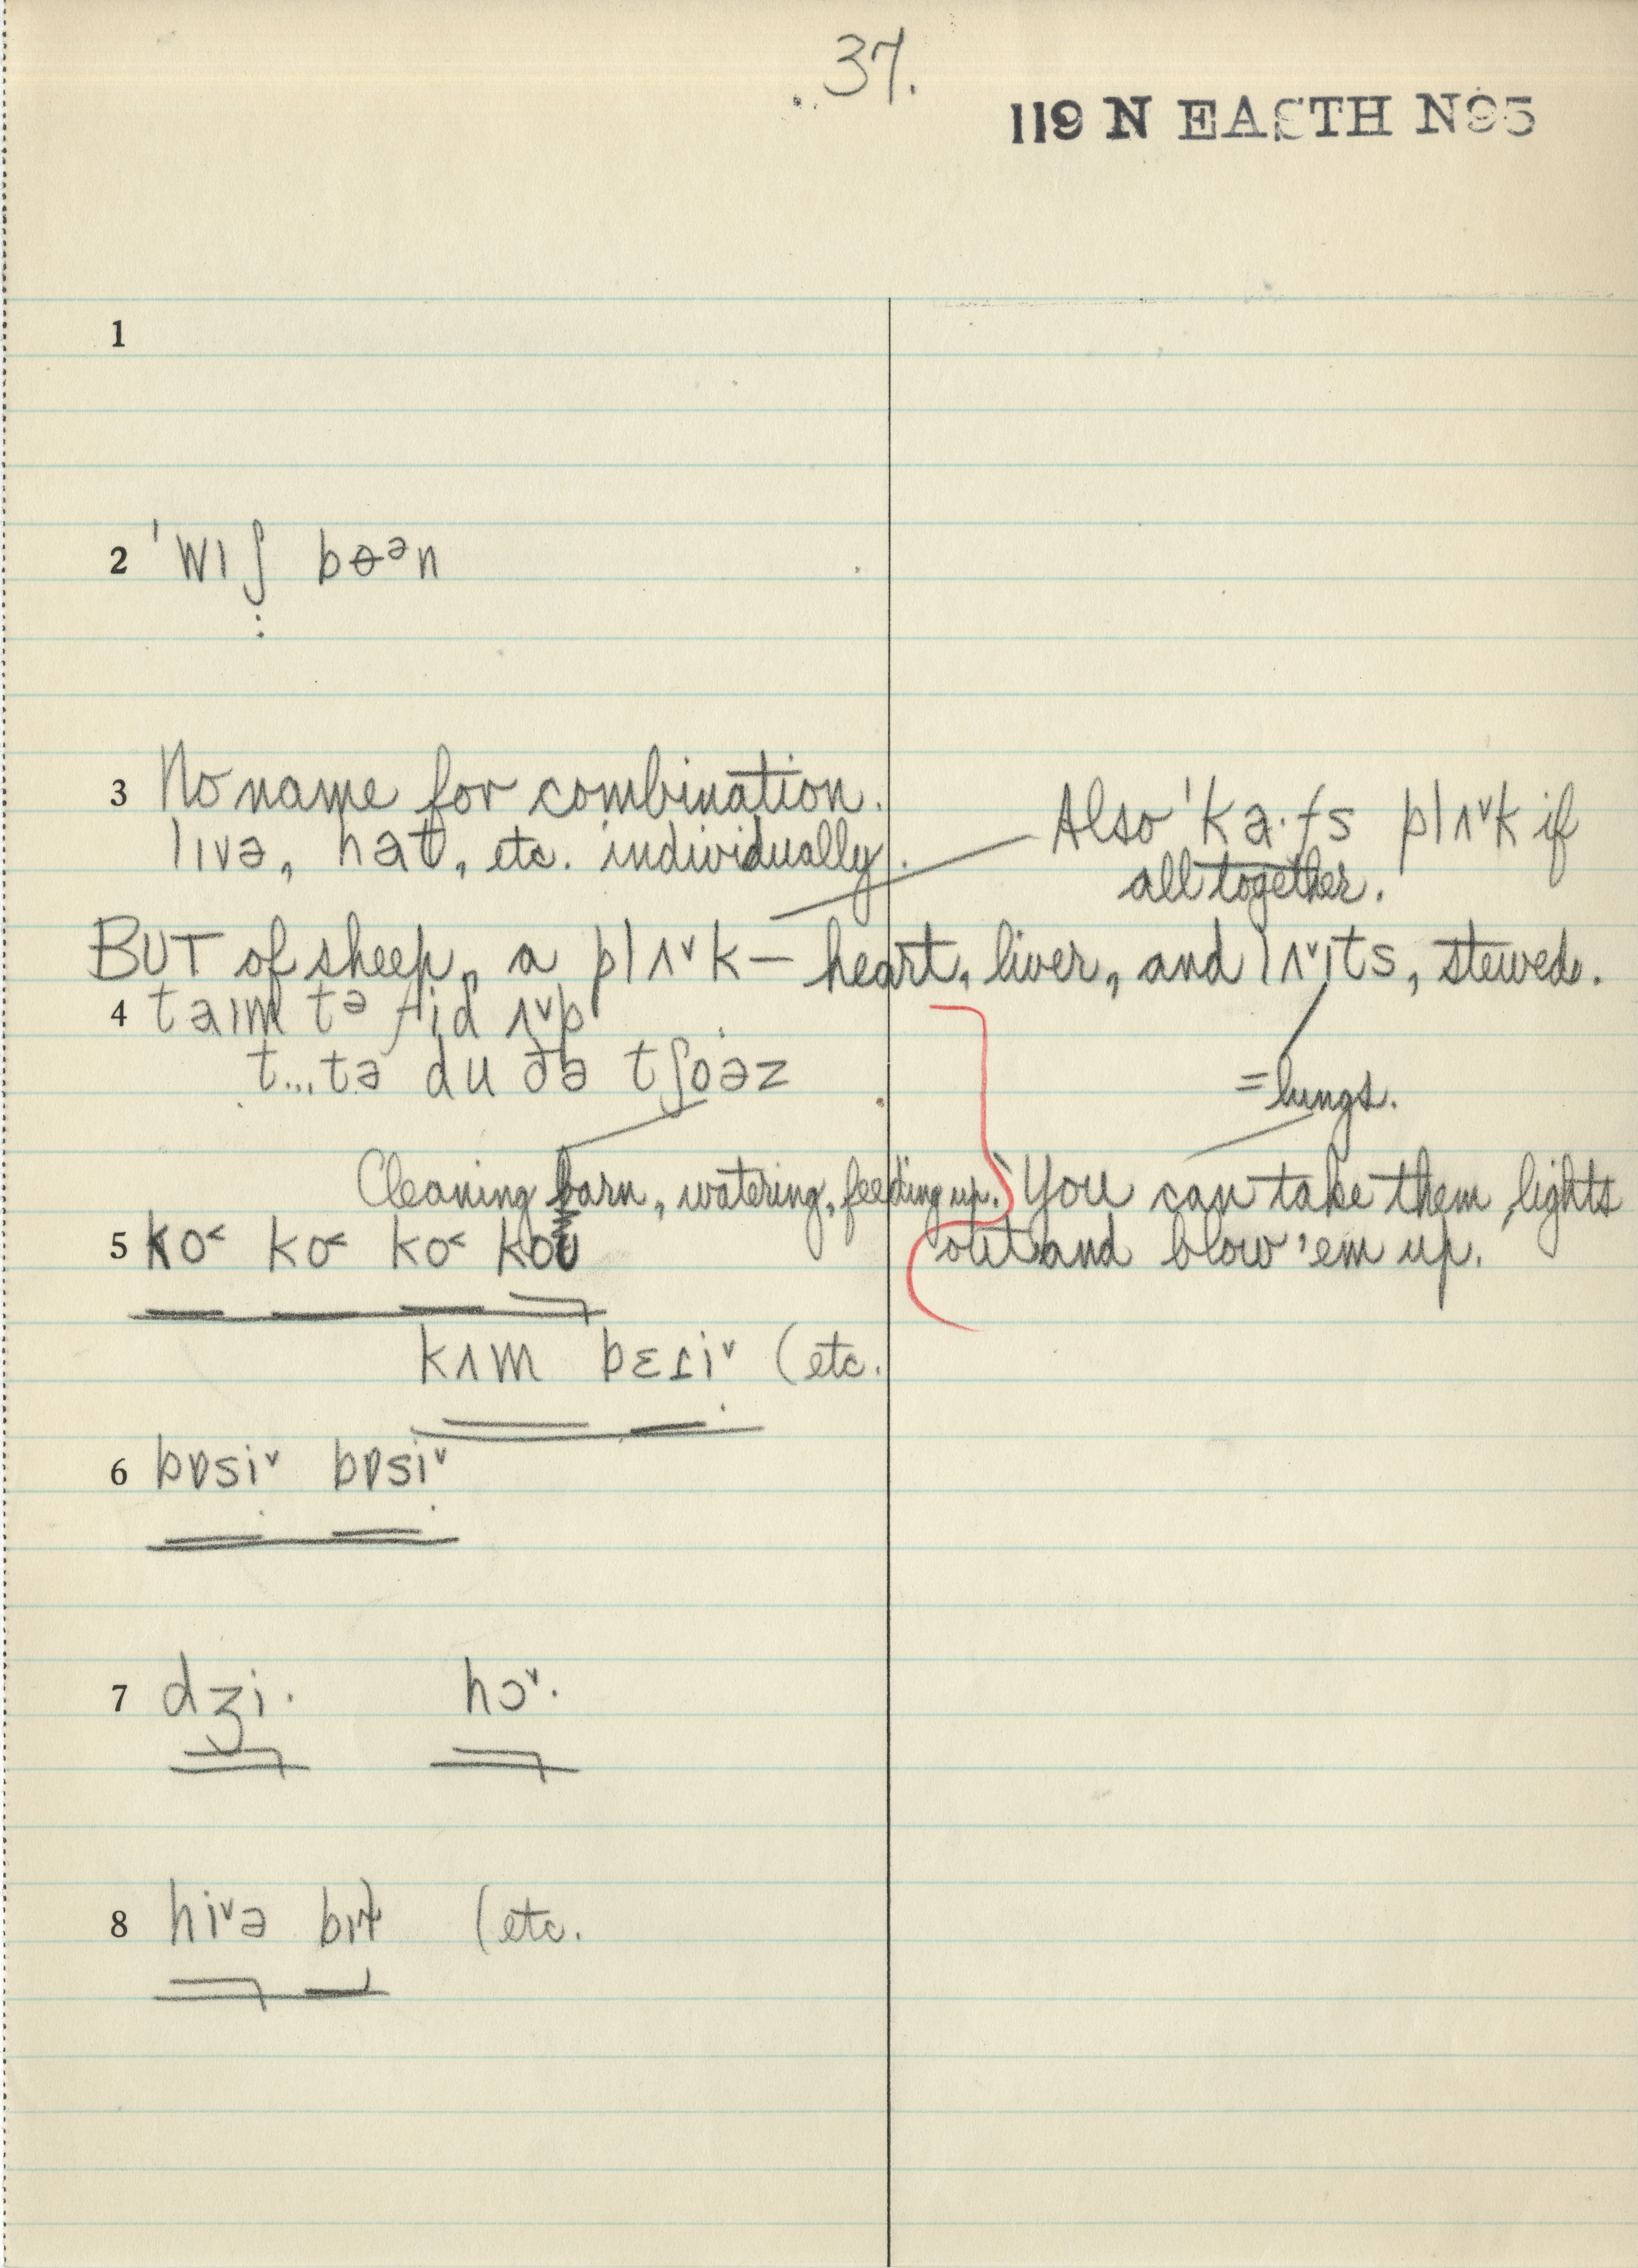 37.
119 N EASTH N95
1
2 ˈwɪʃ bɵᵊn
3 No name for combination.
lɪvə, hat, etc. individually.
Also ˈka·fs plʌ˅k if
all together.
BUT of sheep, a plʌ˅k — heart, liver, and lʌ˅ɪts, stewed.
4 taɪm tə fid ʌ˅p
t...tə du ðə tʃoəz
= lungs.
Cleaning barn, watering, feeding up.
You can take them lights
out and blow 'em up.
5 ko˂ ko˂ ko˂ koʊ
kʌm bɛsi˅ (etc.
6 bɒsi˅ bɒsi˅
7 dʒi· hɔ˅·
8 hi˅ə bɪɫ (etc.